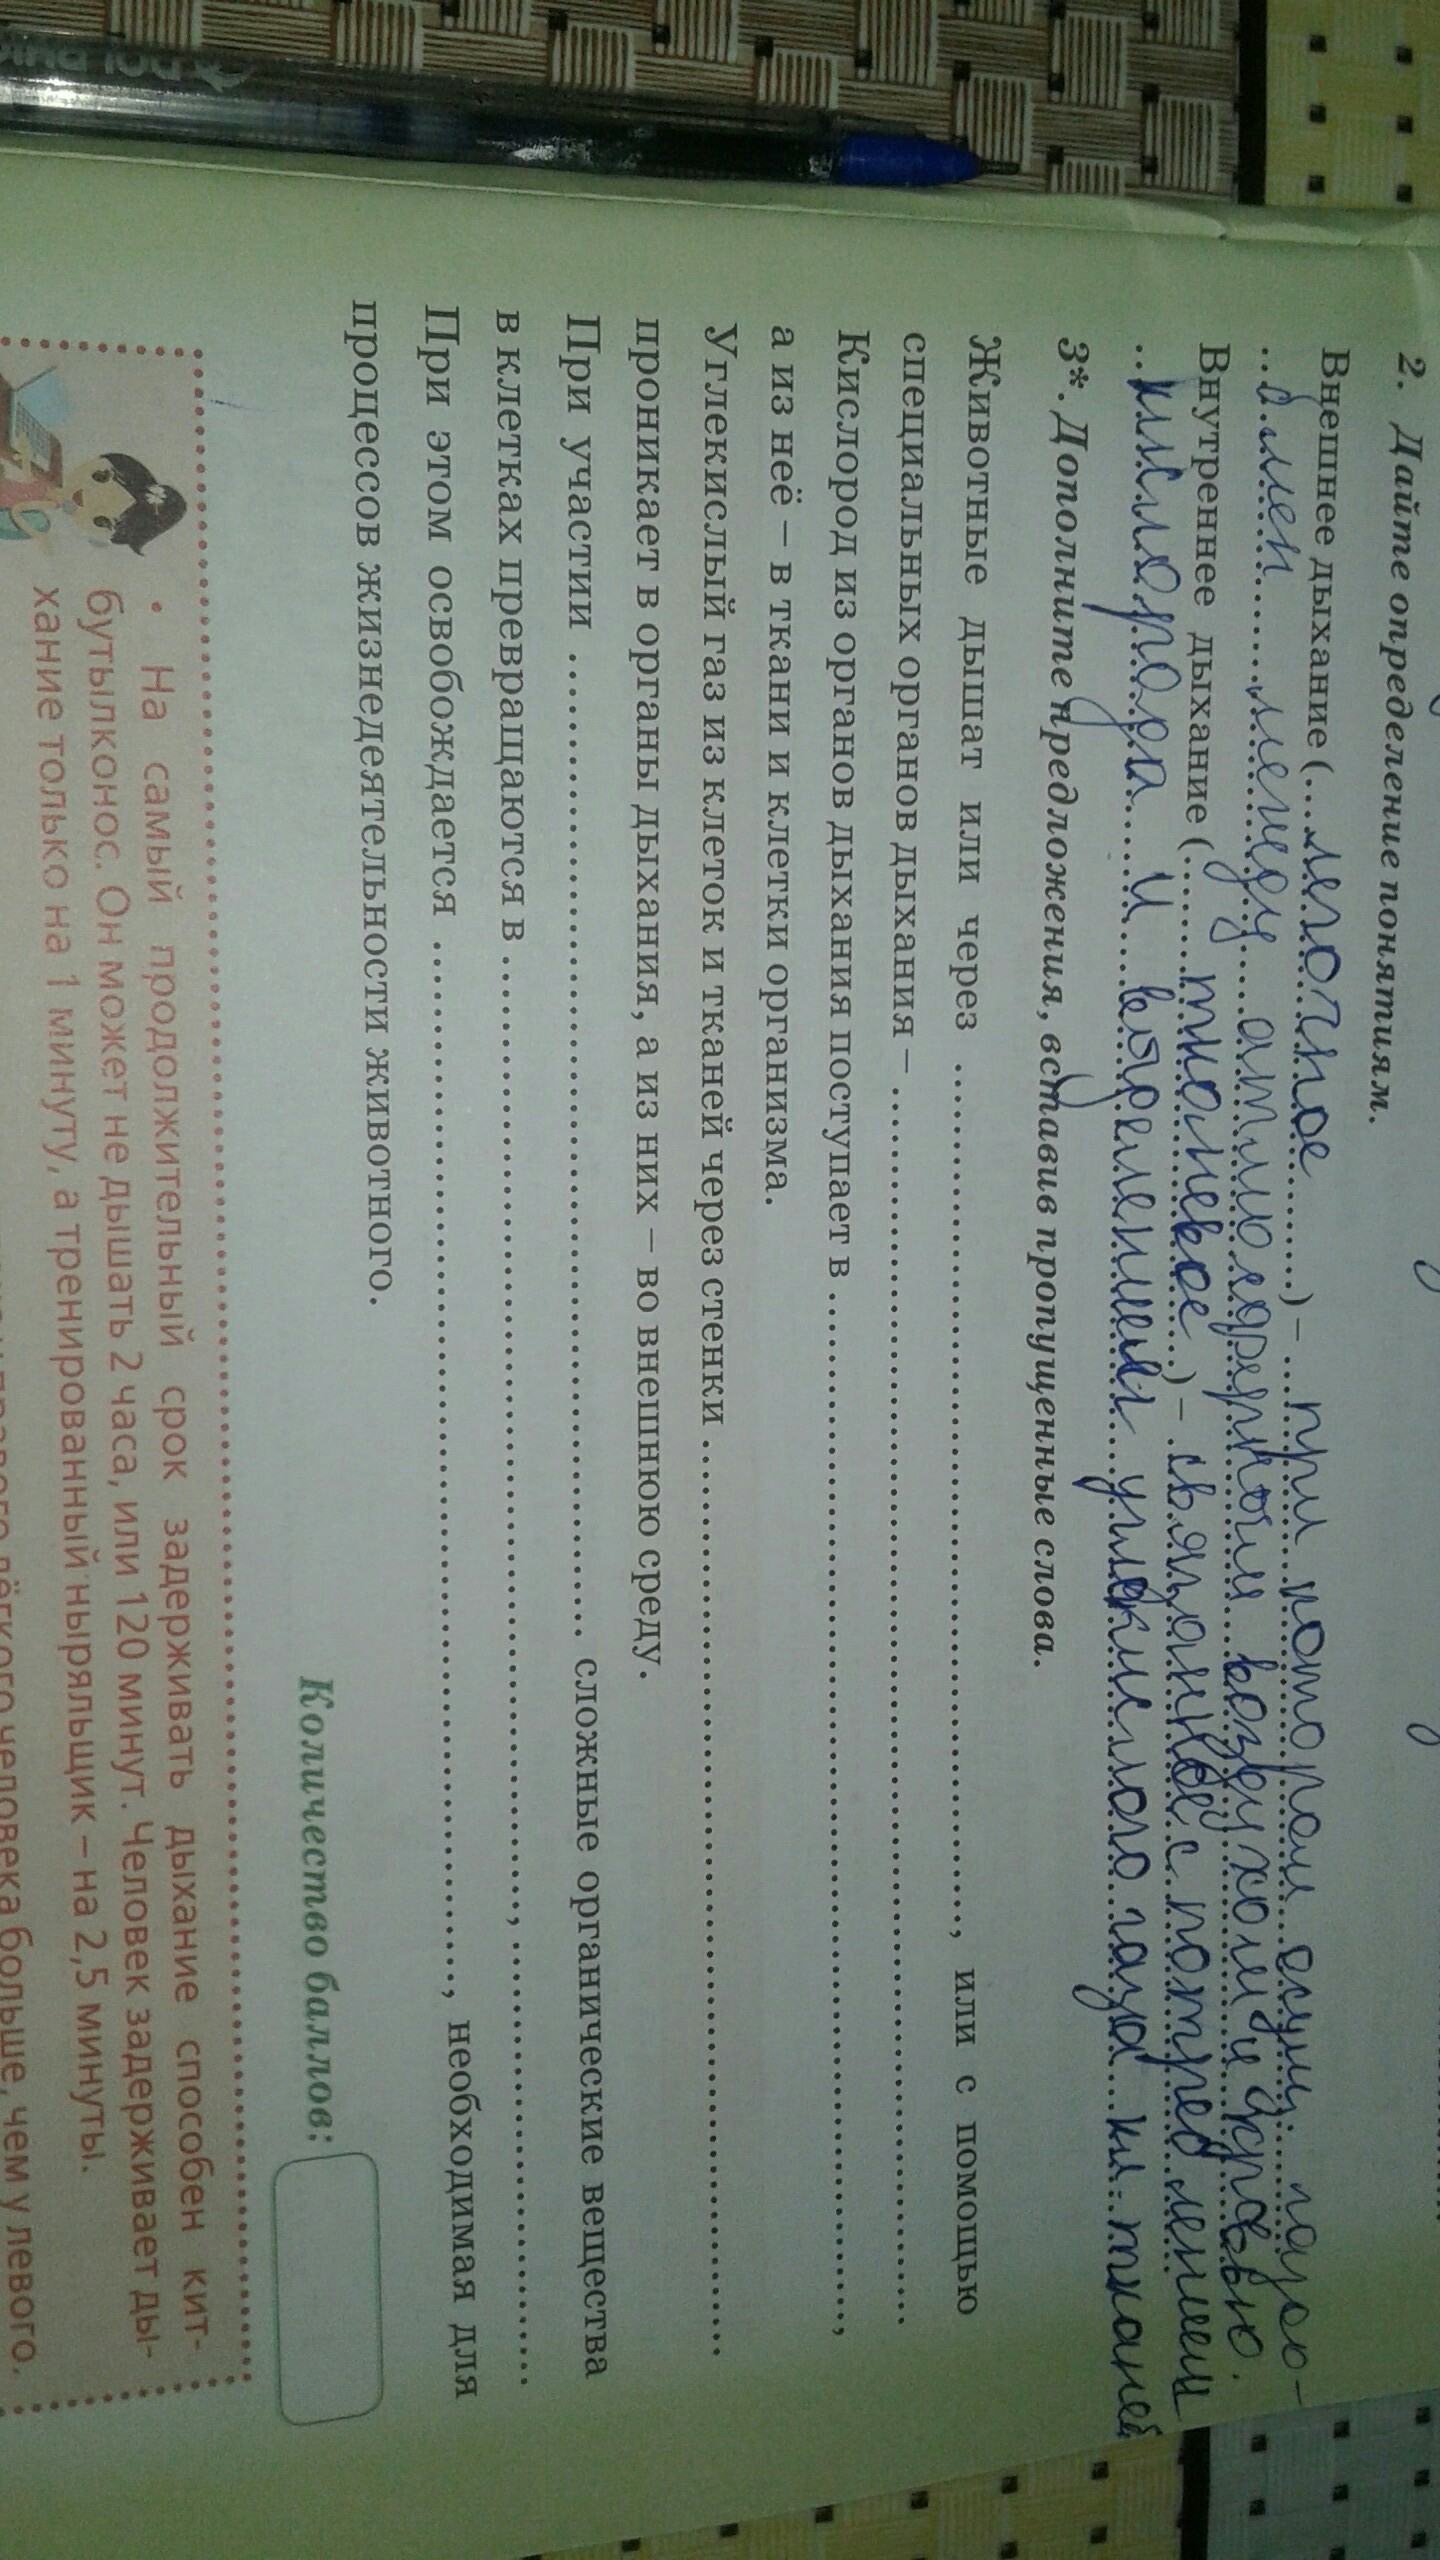 2. Дайте определение понятиям.
Внешнее дыхание (...легочное...) – ...при котором осущ. газо-
обмен между атмосферным воздухом и кровью.
Внутреннее дыхание (...тканевое...) – связанное с потреблением
кислорода и выделения углекислого газа кл. тканей
3*. Дополните предложения, вставив пропущенные слова.
Животные дышат или через ..., или с помощью
специальных органов дыхания – ...
Кислород из органов дыхания поступает в ...,
а из неё – в ткани и клетки организма.
Углекислый газ из клеток и тканей через стенки ...
проникает в органы дыхания, а из них – во внешнюю среду.
При участии ... сложные органические вещества
в клетках превращаются в ..., ...
При этом освобождается ..., необходимая для
процессов жизнедеятельности животного.
Количество баллов:
• На самый продолжительный срок задерживать дыхание способен кит-
бутылконос. Он может не дышать 2 часа, или 120 минут. Человек задерживает ды-
хание только на 1 минуту, а тренированный ныряльщик – на 2,5 минуты.
правого лёгкого человека больше, чем у левого.